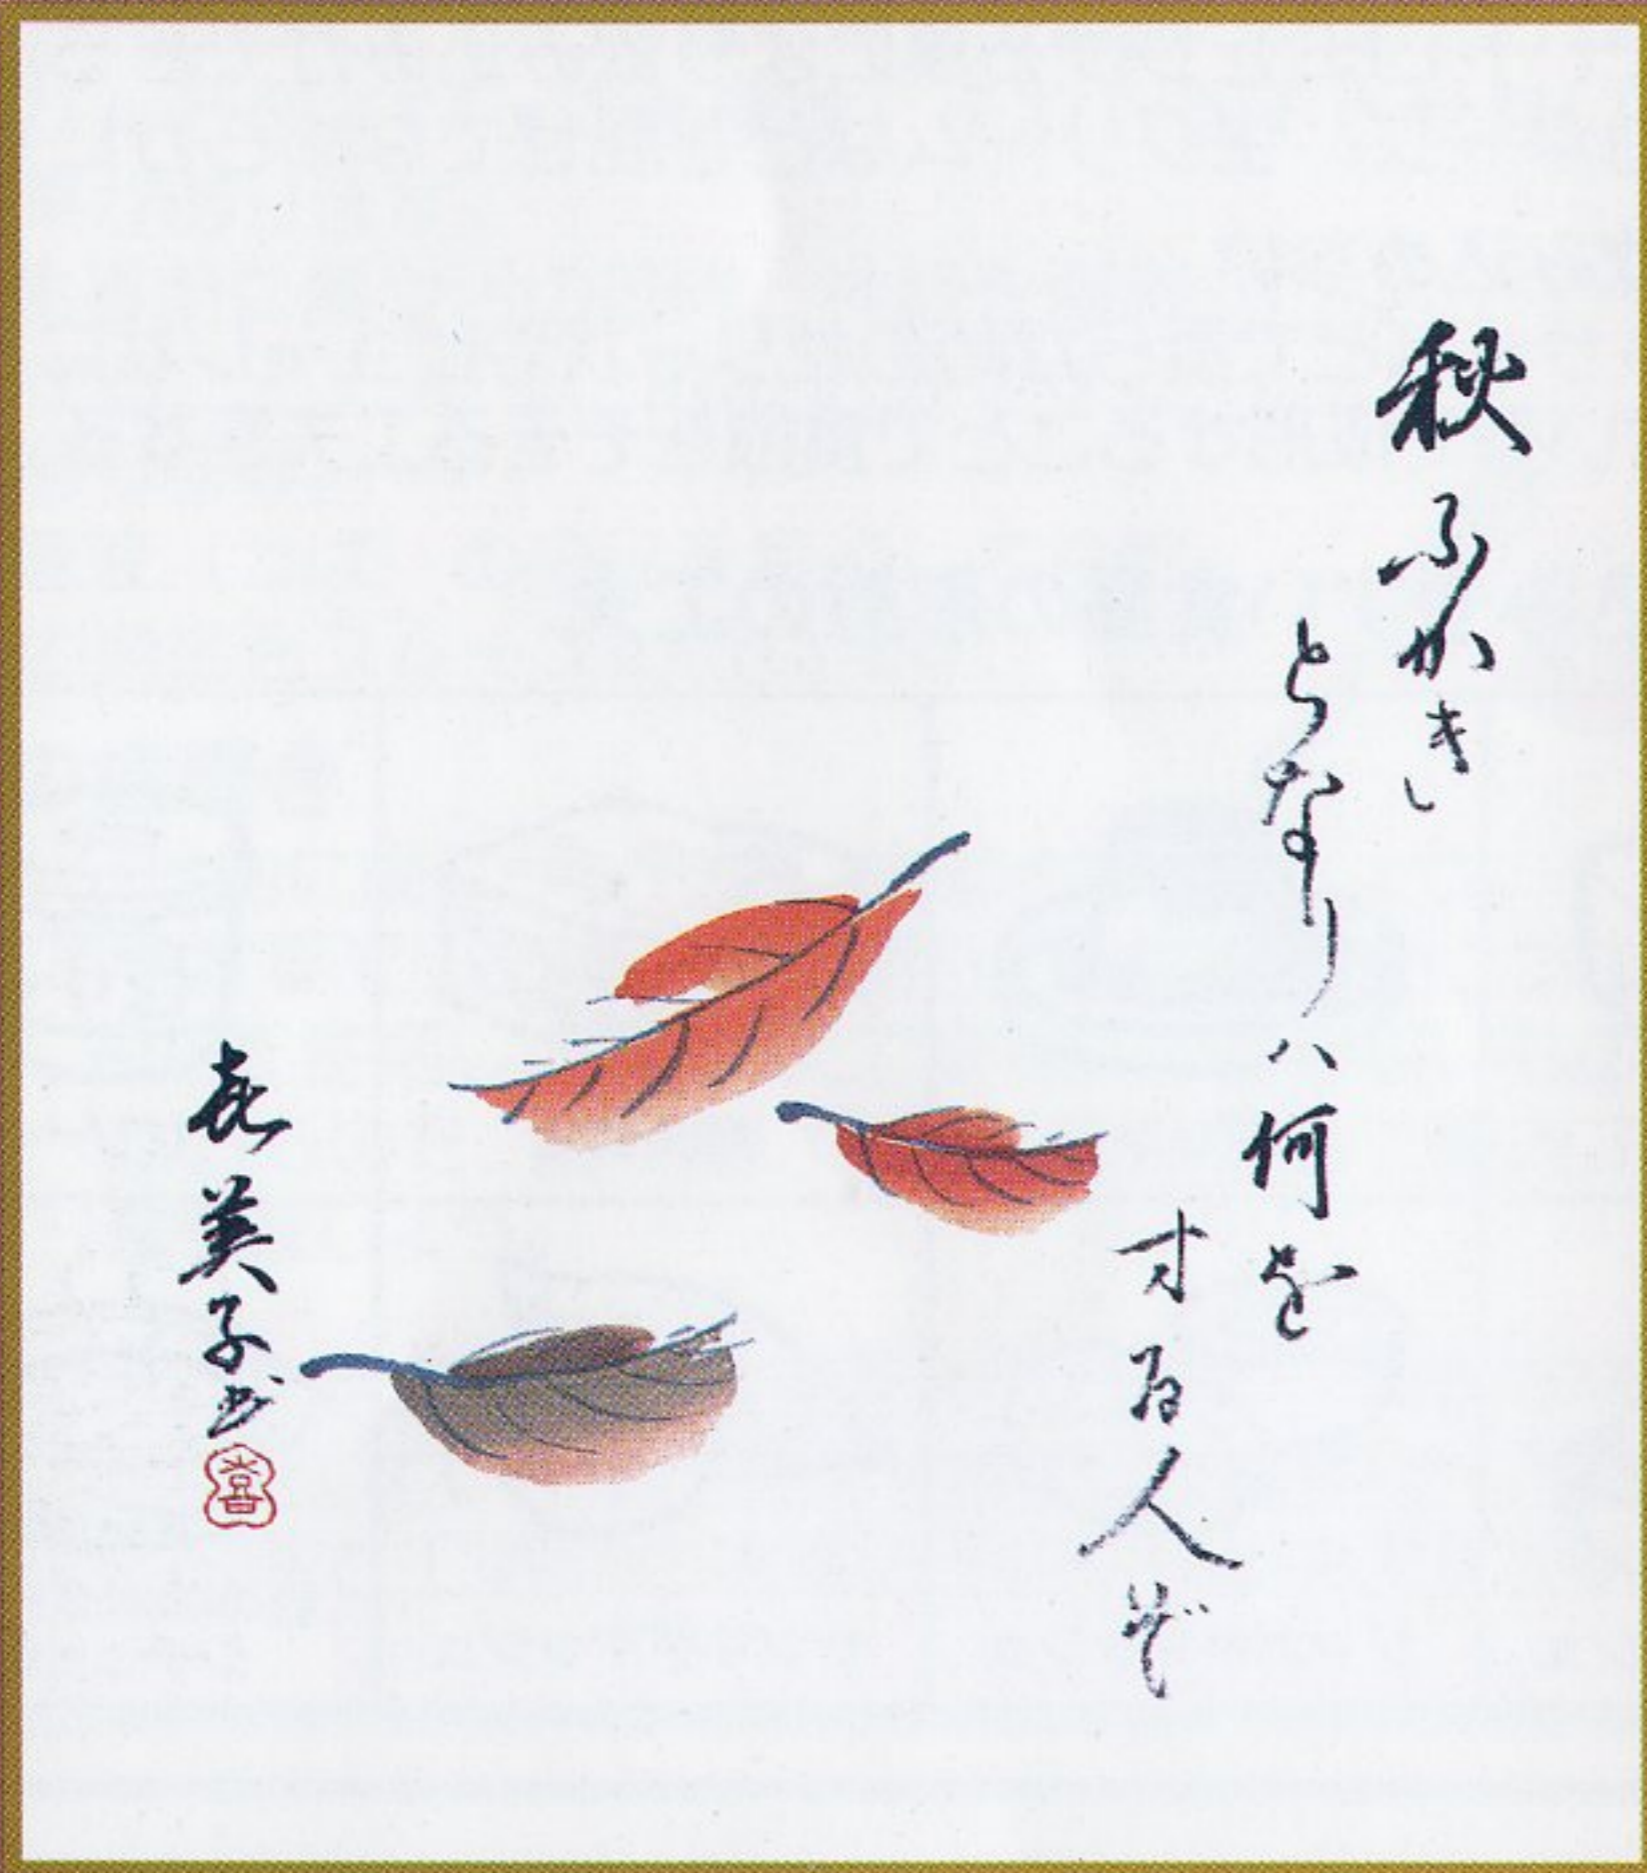 秋ふかき
となりハ何を
する人ぞ
喜美子書
喜